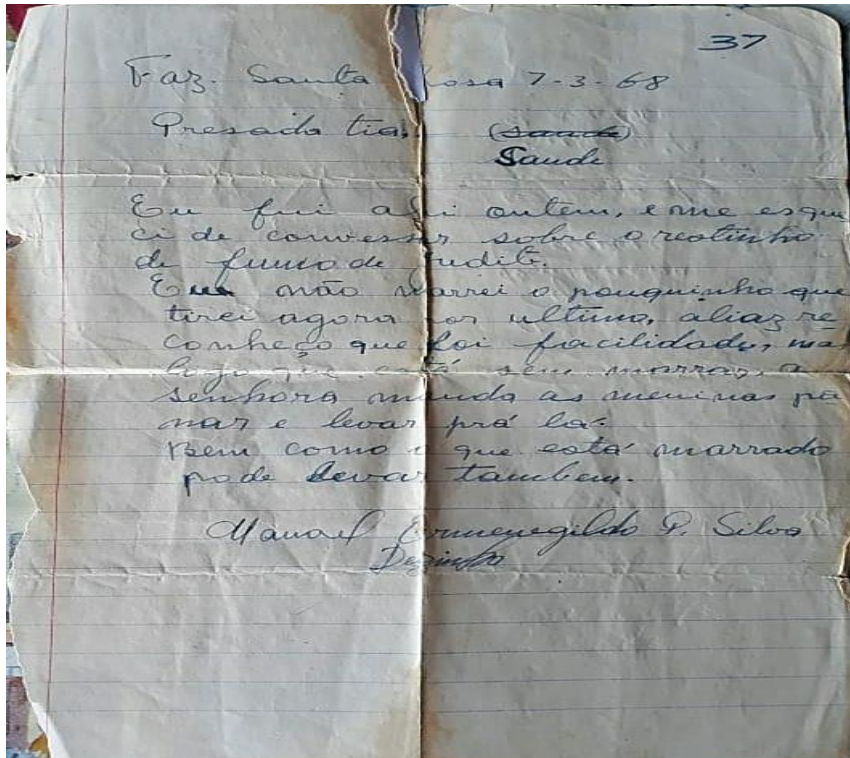 37
Faz. Santa Rosa 7-3-68
Presada tia, (saude)
Saude
Eu fui ali ontem, e me esque
ci de conversar sobre o restinho
de fumo de Judite.
Eu não marrei o pouquinho que
tirei agora por ultimo, aliaz re
conheço que foi facilidade, mas
logo que está sem marrar, a
senhora manda as meninas pa
nar e levar prá lá.
Bem como o que está marrado
pode levar tambem.
Manoel Ermenegildo P. Silva
Dezinho